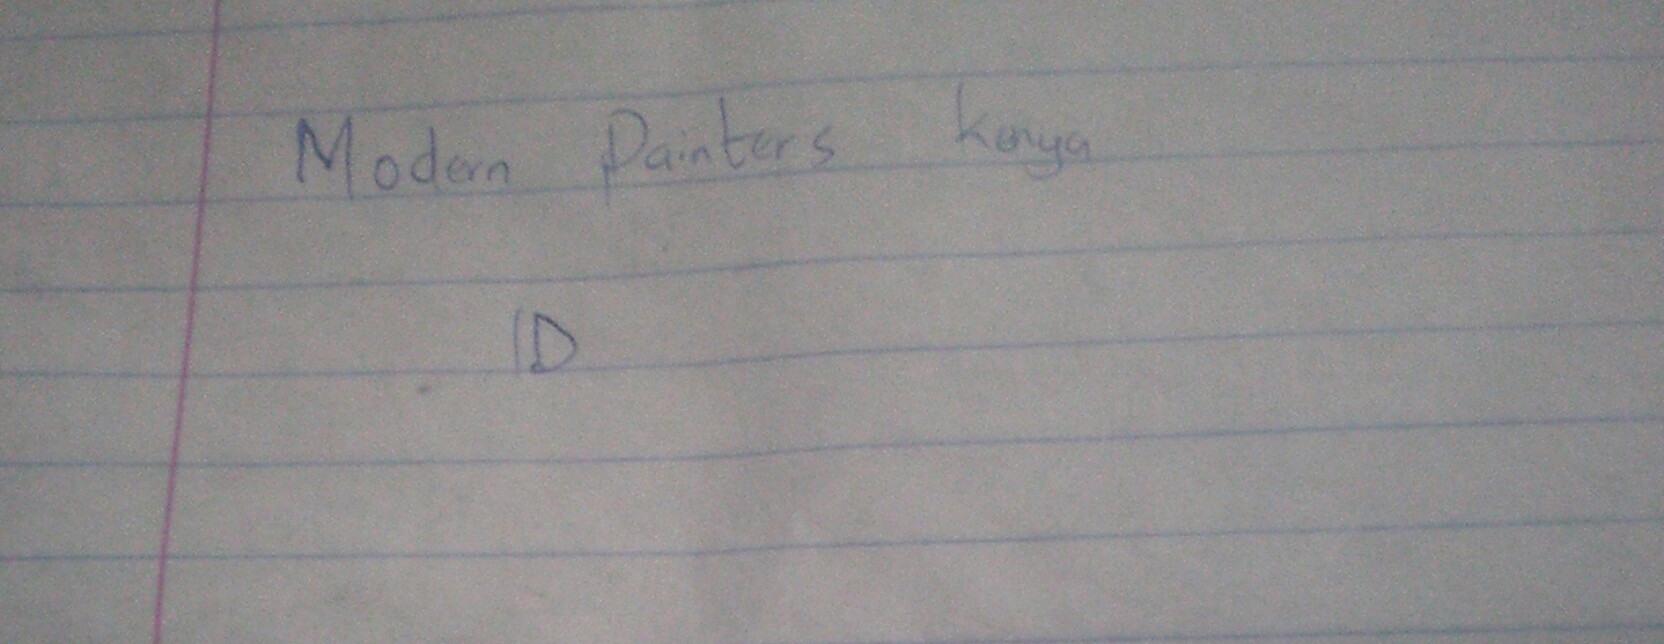 Modern Painters kenya
ID